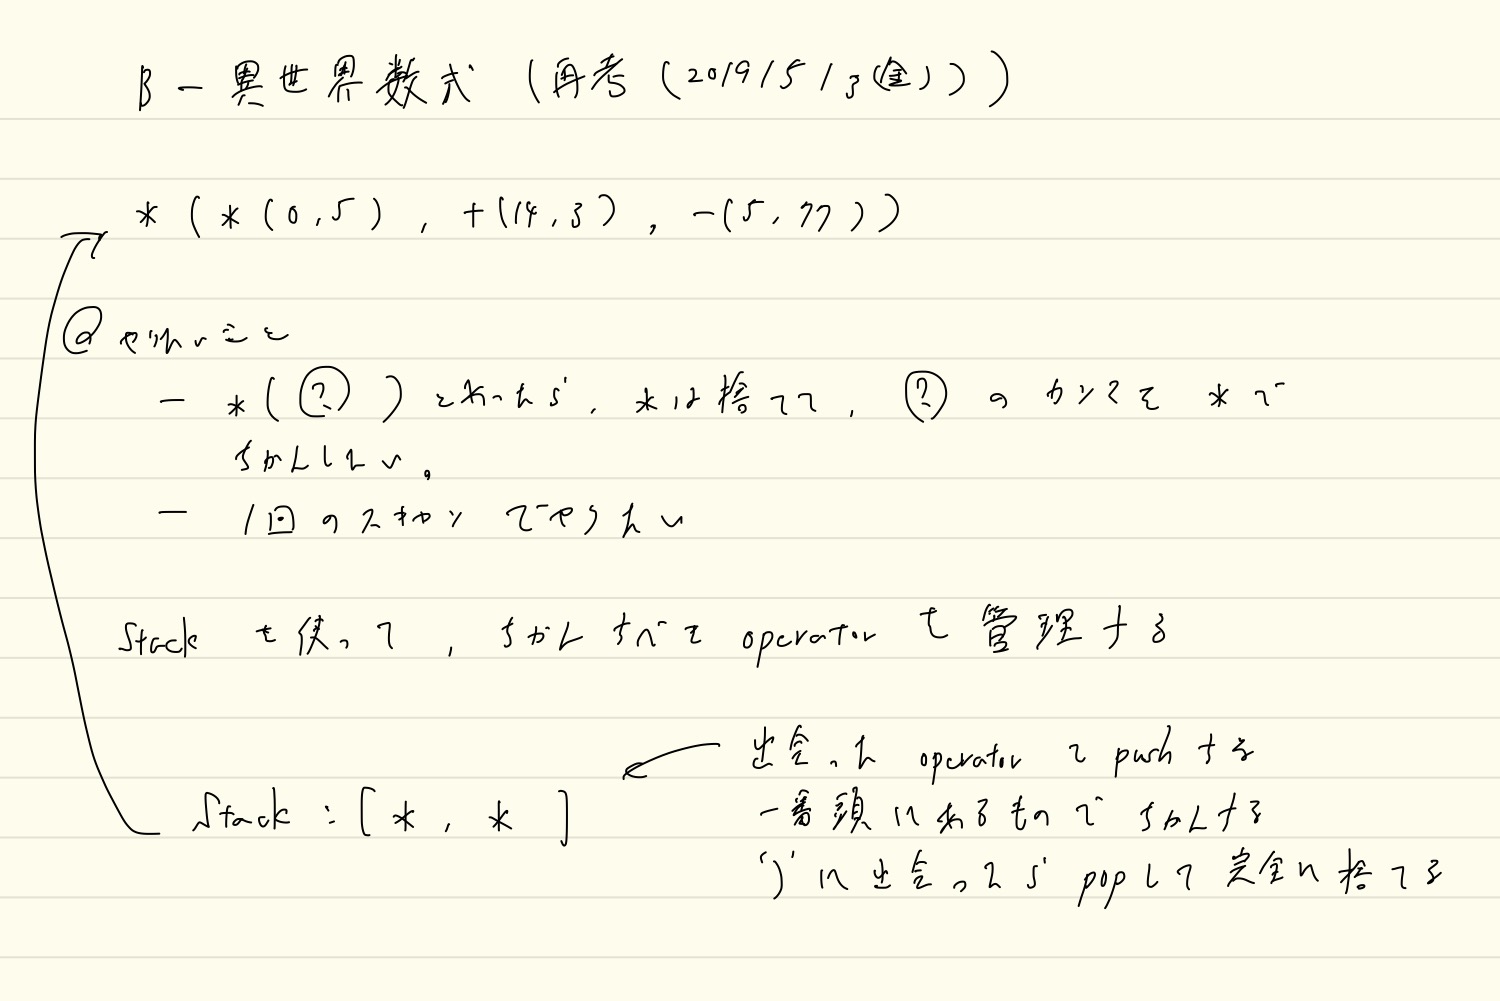 B - 異世界数式 (再考 (2019/5/3(金)))
* ( * (0,5) , +(14,3) , -(5,77))
@ やりたいこと
- *( ? ) とあったら, *は捨てて, ? のカンマを * で
ちかんしたい。
- 1回のスキャンでやりたい
Stack を使って, ちかんすべき operator を管理する
出会った operator で push する
Stack : [ * , * ]
一番頭にあるものでちかんする
')' に出会ったら pop して完全に捨てる